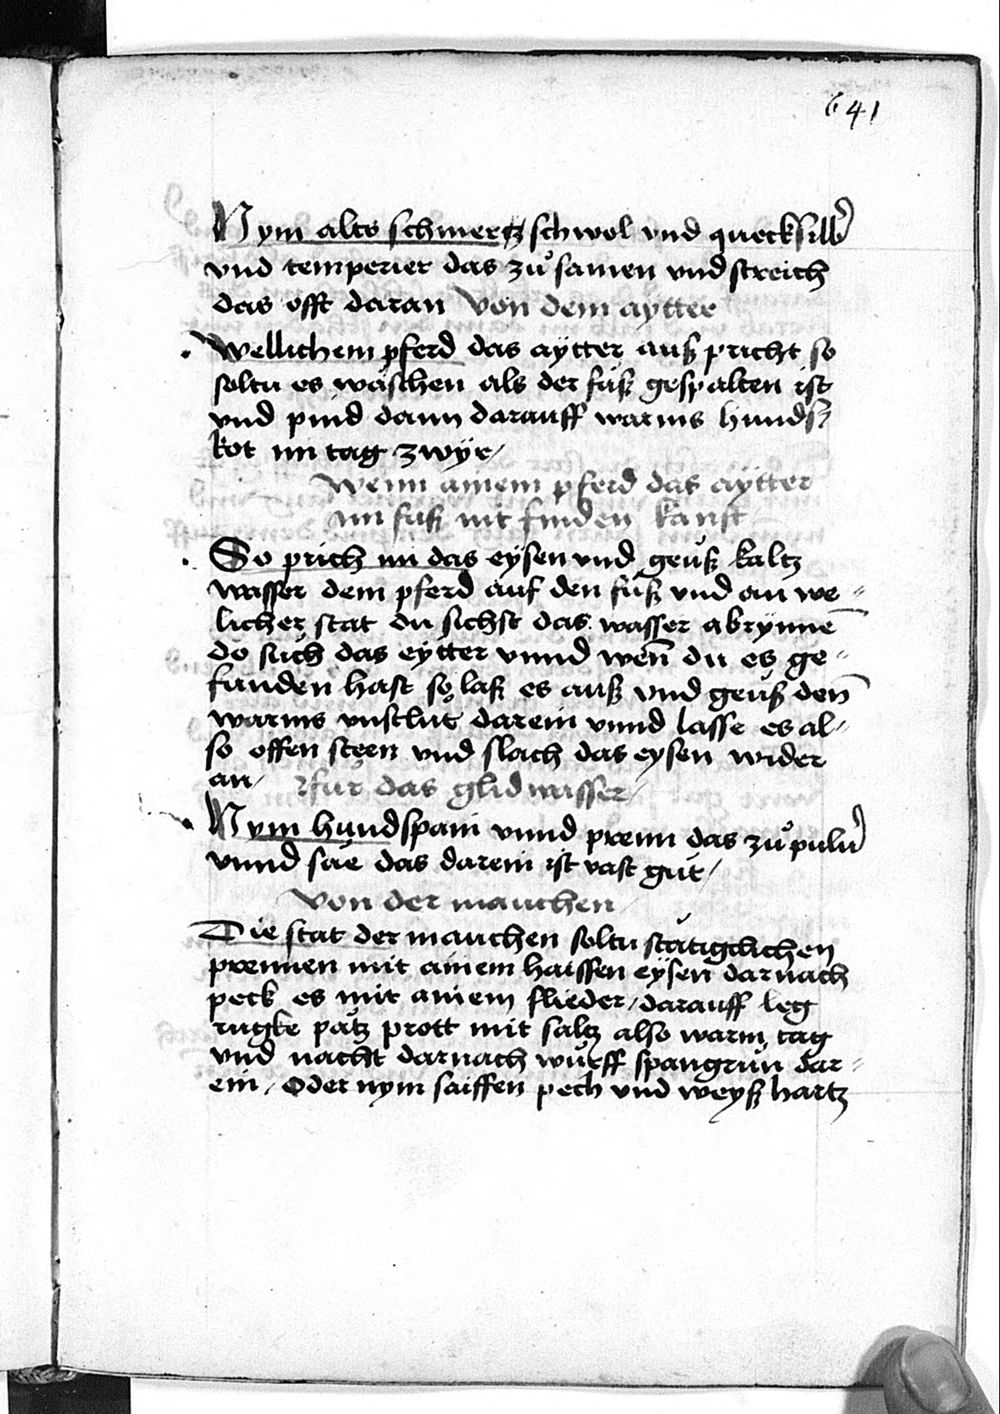 641
Nym alts schmertz schwol vnd quecksilb'
vnd temperier das zů samen vnd streich
das offt daran Von dem aytter
Wellichem pferd das aytter auß pricht so
soltu es wäschen als der fůß gespalten ist
vnd pind dann darauff warms hunds
kot im tag zwÿe /
Wenn ainem pferd das aÿtter
im fuß nit finden kanst
So prich im das eÿsen vnd geuß kaltz
wasser dem pferd auf den fůß vnd an we-
licher stat du sichst das wasser abrÿnnē
do sůch das eÿtter vnnd weñ du es ge-
funden hast so laß es auß vnd geuß deñ
warms vnslut darein vnnd lasse es al-
so offen steen vnd slach das eÿsen wider
an / Fur das glidwasser /
Nym hundspain vnnd prenn das zů pulu'
vnnd säe das darein ist vast gůt /
Von der mauchen
Die stat der mauchen soltu stätigclichen
prennen mit ainem haissen eÿsen darnach
peck es mit ainem flieder / darauff leg
rugke patz prott mit saltz also warm tag
vnd nacht darnach wůrff spangrůn dar-
ein / Oder nym saiffen pech vnd weÿß hartz